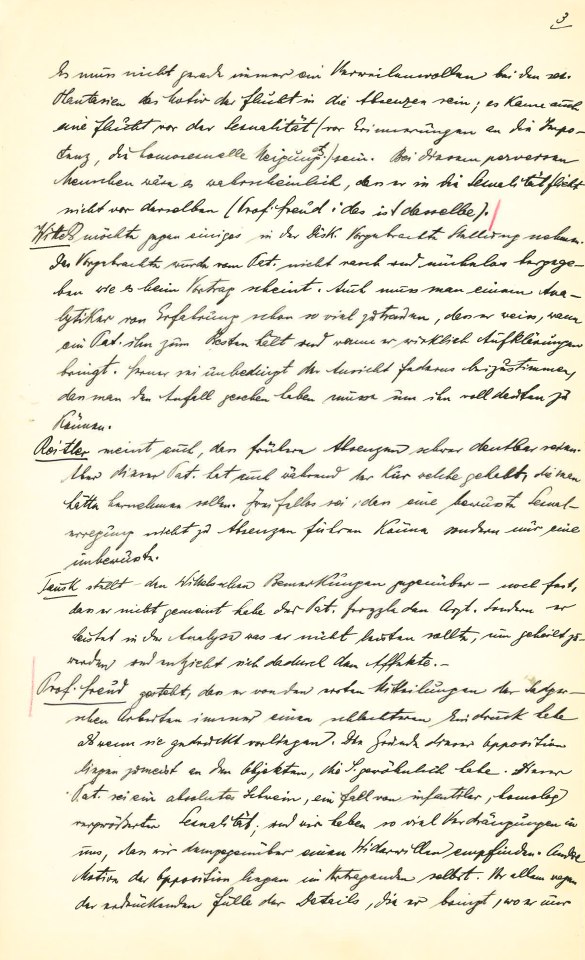 3
Es muss nicht gerade immer ein Verweilenwollen bei den sex.
Phantasien das Motiv der Flucht in die Absenzen sein; es kann auch
eine Flucht vor der Sexualität (vor Erinnerungen an die Impo-
tenz, die homosexuelle Neigung) sein. Bei diesem perversen
Menschen wäre es wahrscheinlich, dass er in die Sexualität flieht
nicht vor derselben (Prof. Freud: das ist dasselbe).
Wittels möchte gegen einiges in der Disk. Vorgebrachte Stellung nehmen.
Das Vorgebrachte wurde vom Pat. nicht rasch und mühelos herge-
ben wie es beim Vortrag scheint. Auch muss man einem Ana-
lytiker von Erfahrung schon so viel zutrauen, dass er weiss, wann
ein Pat. ihn zum Besten hält und wann er wirklich Aufklärungen
bringt. Ferner sei unbedingt der Ansicht Federns beizustimmen,
dass man den Anfall gesehen haben müsse um ihn voll deuten zu
können.
Reitler meint auch, dass frühere Absenzen schwer deutbar seien.
Aber dieser Pat. hat auch während der Kur welche gehabt, die man
hätte hernehmen sollen. Zweifellos sei, dass eine bewusste Sexual-
erregung nicht zu Absenzen führen könne sondern nur eine
unbewusste.
Tausk stellt den Wittelsschen Bemerkungen gegenüber – noch fest,
dass er nicht gemeint habe der Pat. frozzle den Arzt. Sondern er
leistet in der Analyse was er nicht leisten sollte, um geheilt zu
werden und entzieht sich dadurch dem Affekte. –
Prof. Freud gesteht, dass er von den ersten Mitteilungen der Sadger-
schen Arbeiten immer einen schlechteren Eindruck habe
als wenn sie gedruckt vorliegen. Die Gründe dieser Opposition
liegen zumeist an den Objekten, die S. gewöhnlich habe. Dieser
Pat. sei ein absolutes Schwein, ein Fall von infantiler, homolog
vergrößerter Sexualität; und wir haben so viel Verdrängungen in
uns, dass wir demgegenüber einen Widerwillen empfinden. Andere
Motive der Opposition liegen im Vortragenden selbst. Vor allem wegen
der erdrückenden Fülle der Details, die er bringt, wo er nur